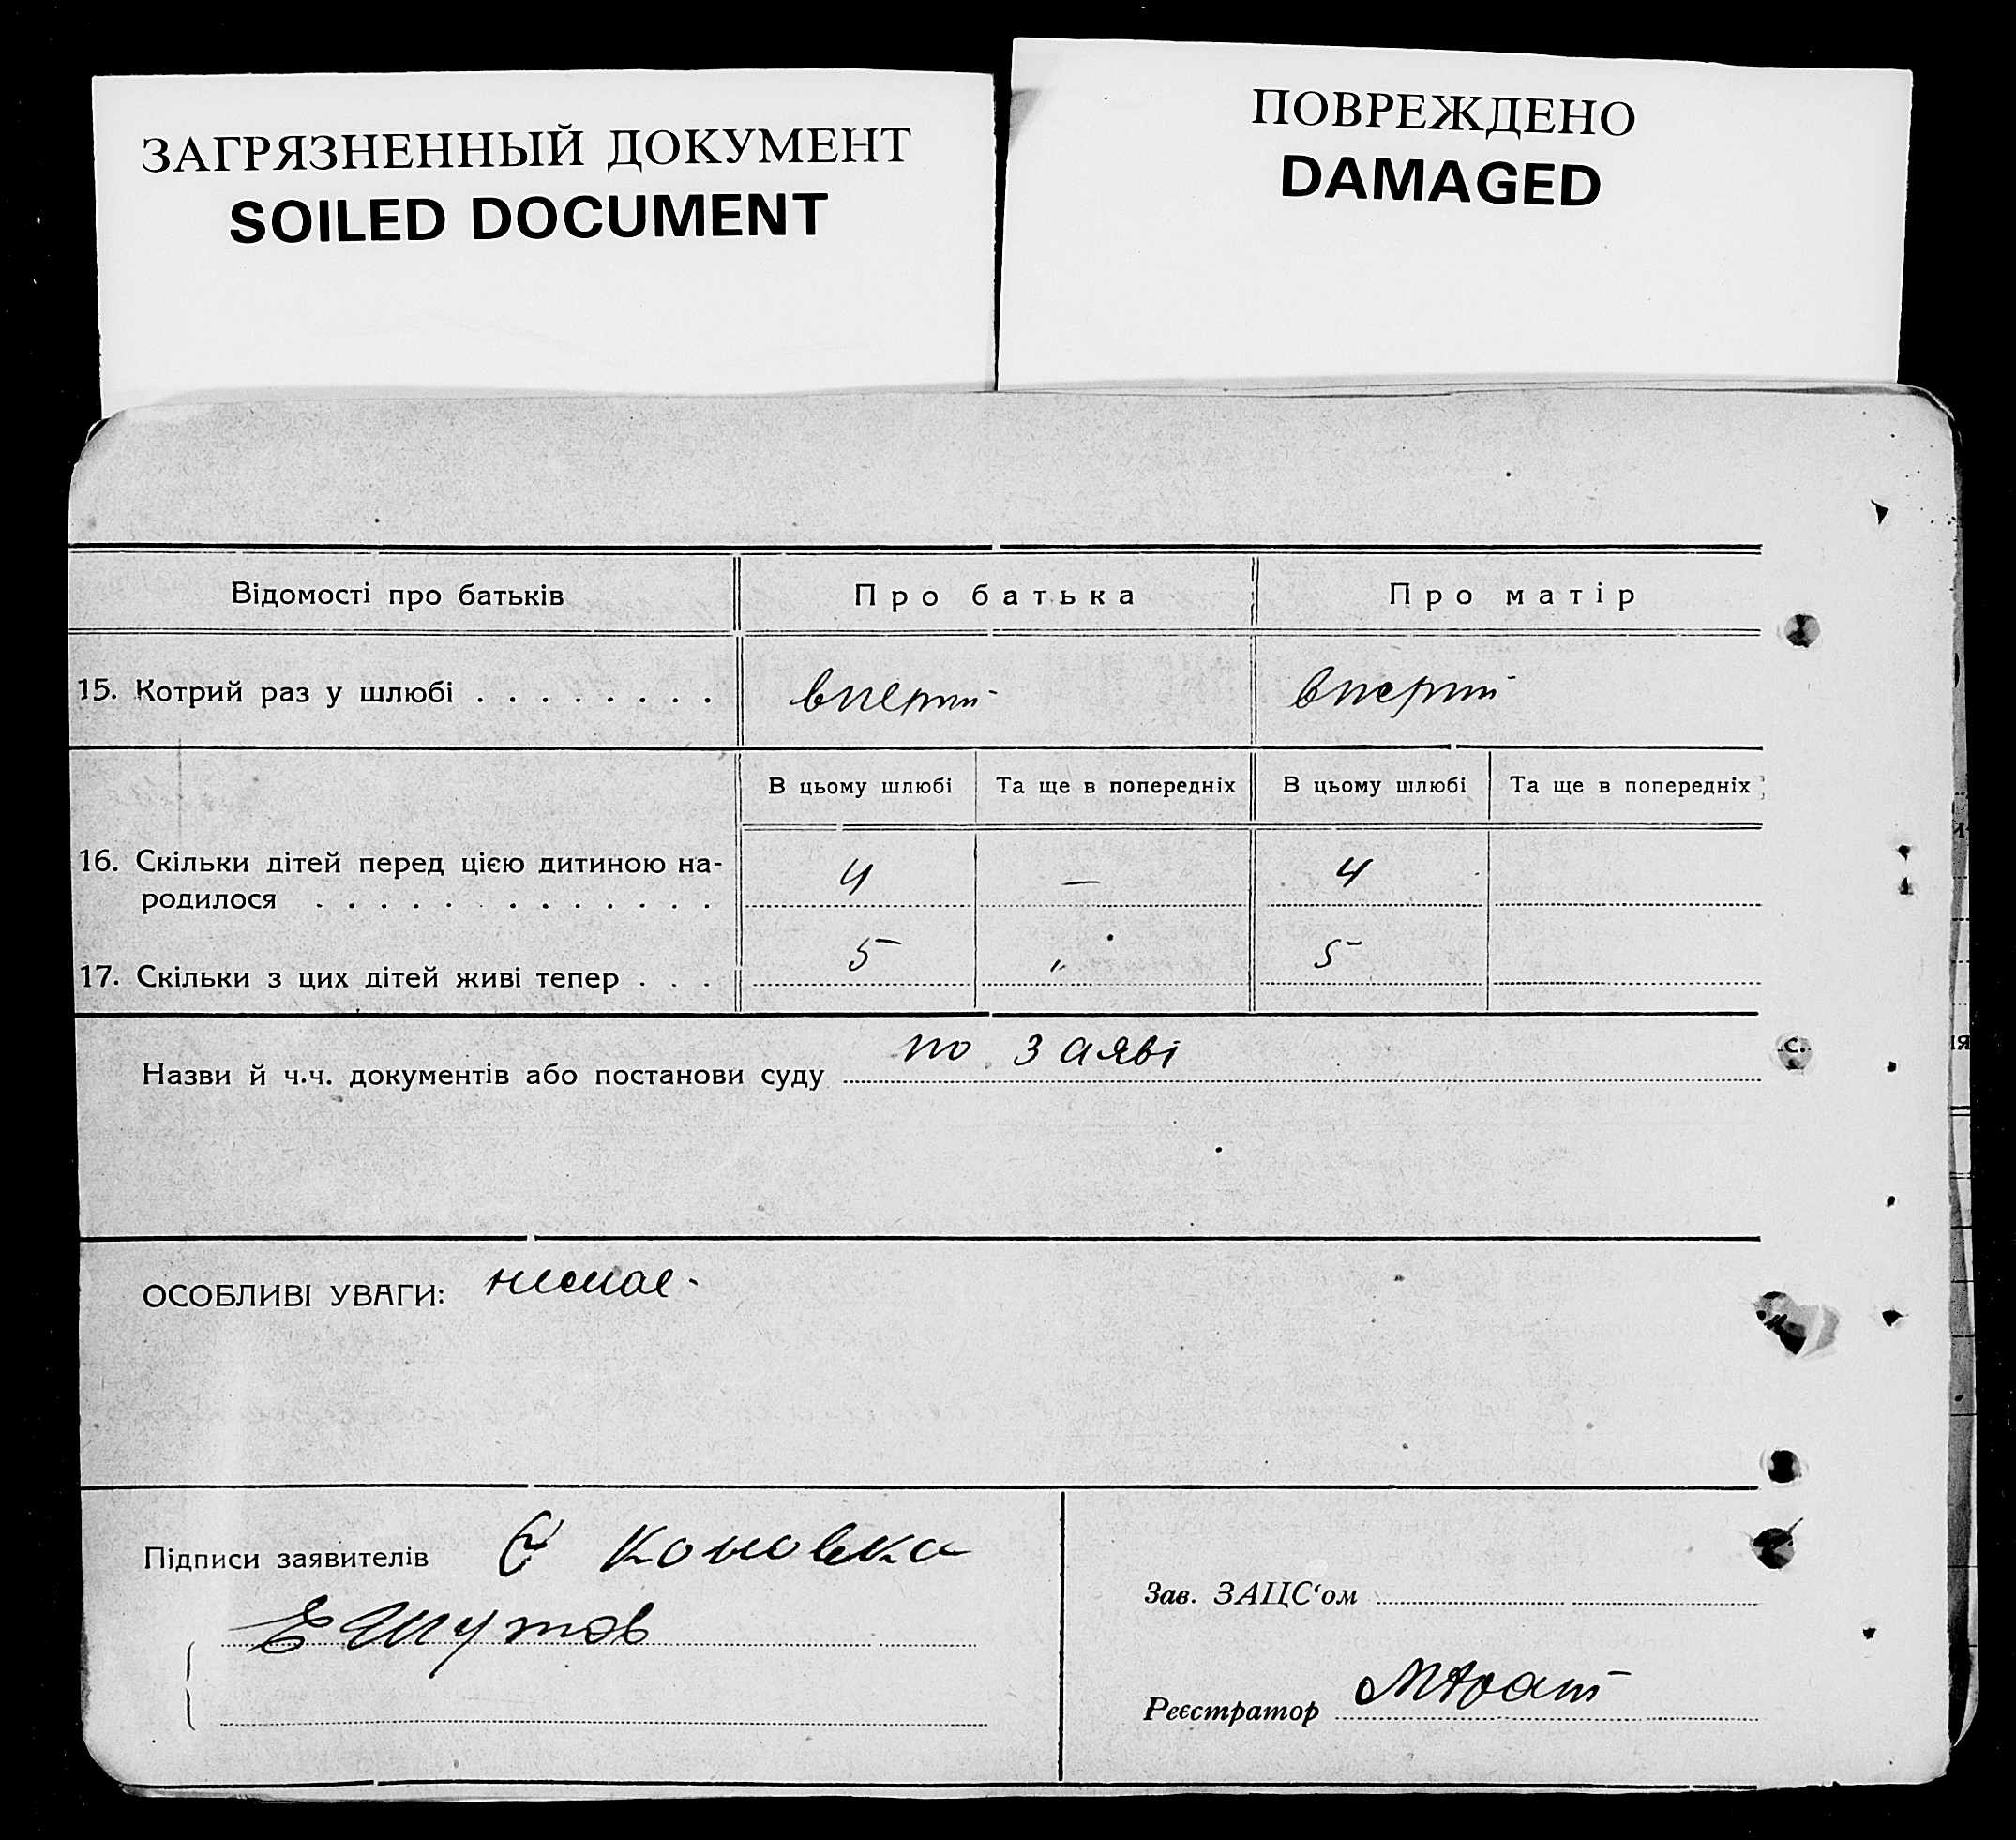 ЗАГРЯЗНЕННЫЙ ДОКУМЕНТ
SOILED DOCUMENT
ПОВРЕЖДЕНО
DAMAGED
Відомості про батьків Про батька Про матір
15. Котрий раз у шлюбі . . . . . . . . вперш вперш
В цьому шлюбі Та ще в попередніх В цьому шлюбі Та ще в попередніх
16. Скільки дітей перед цією дитиною на-
родилося . . . . . . . . . . . . . 4 — 4
17. Скільки з цих дітей живі тепер . . . 5 „ 5
Назви й ч.ч. документів або постанови суду по заяві
ОСОБЛИВІ УВАГИ: немає
Підписи заявителів Є Коновка
Е Шутов
Зав. ЗАЦС‘ом
Реєстратор